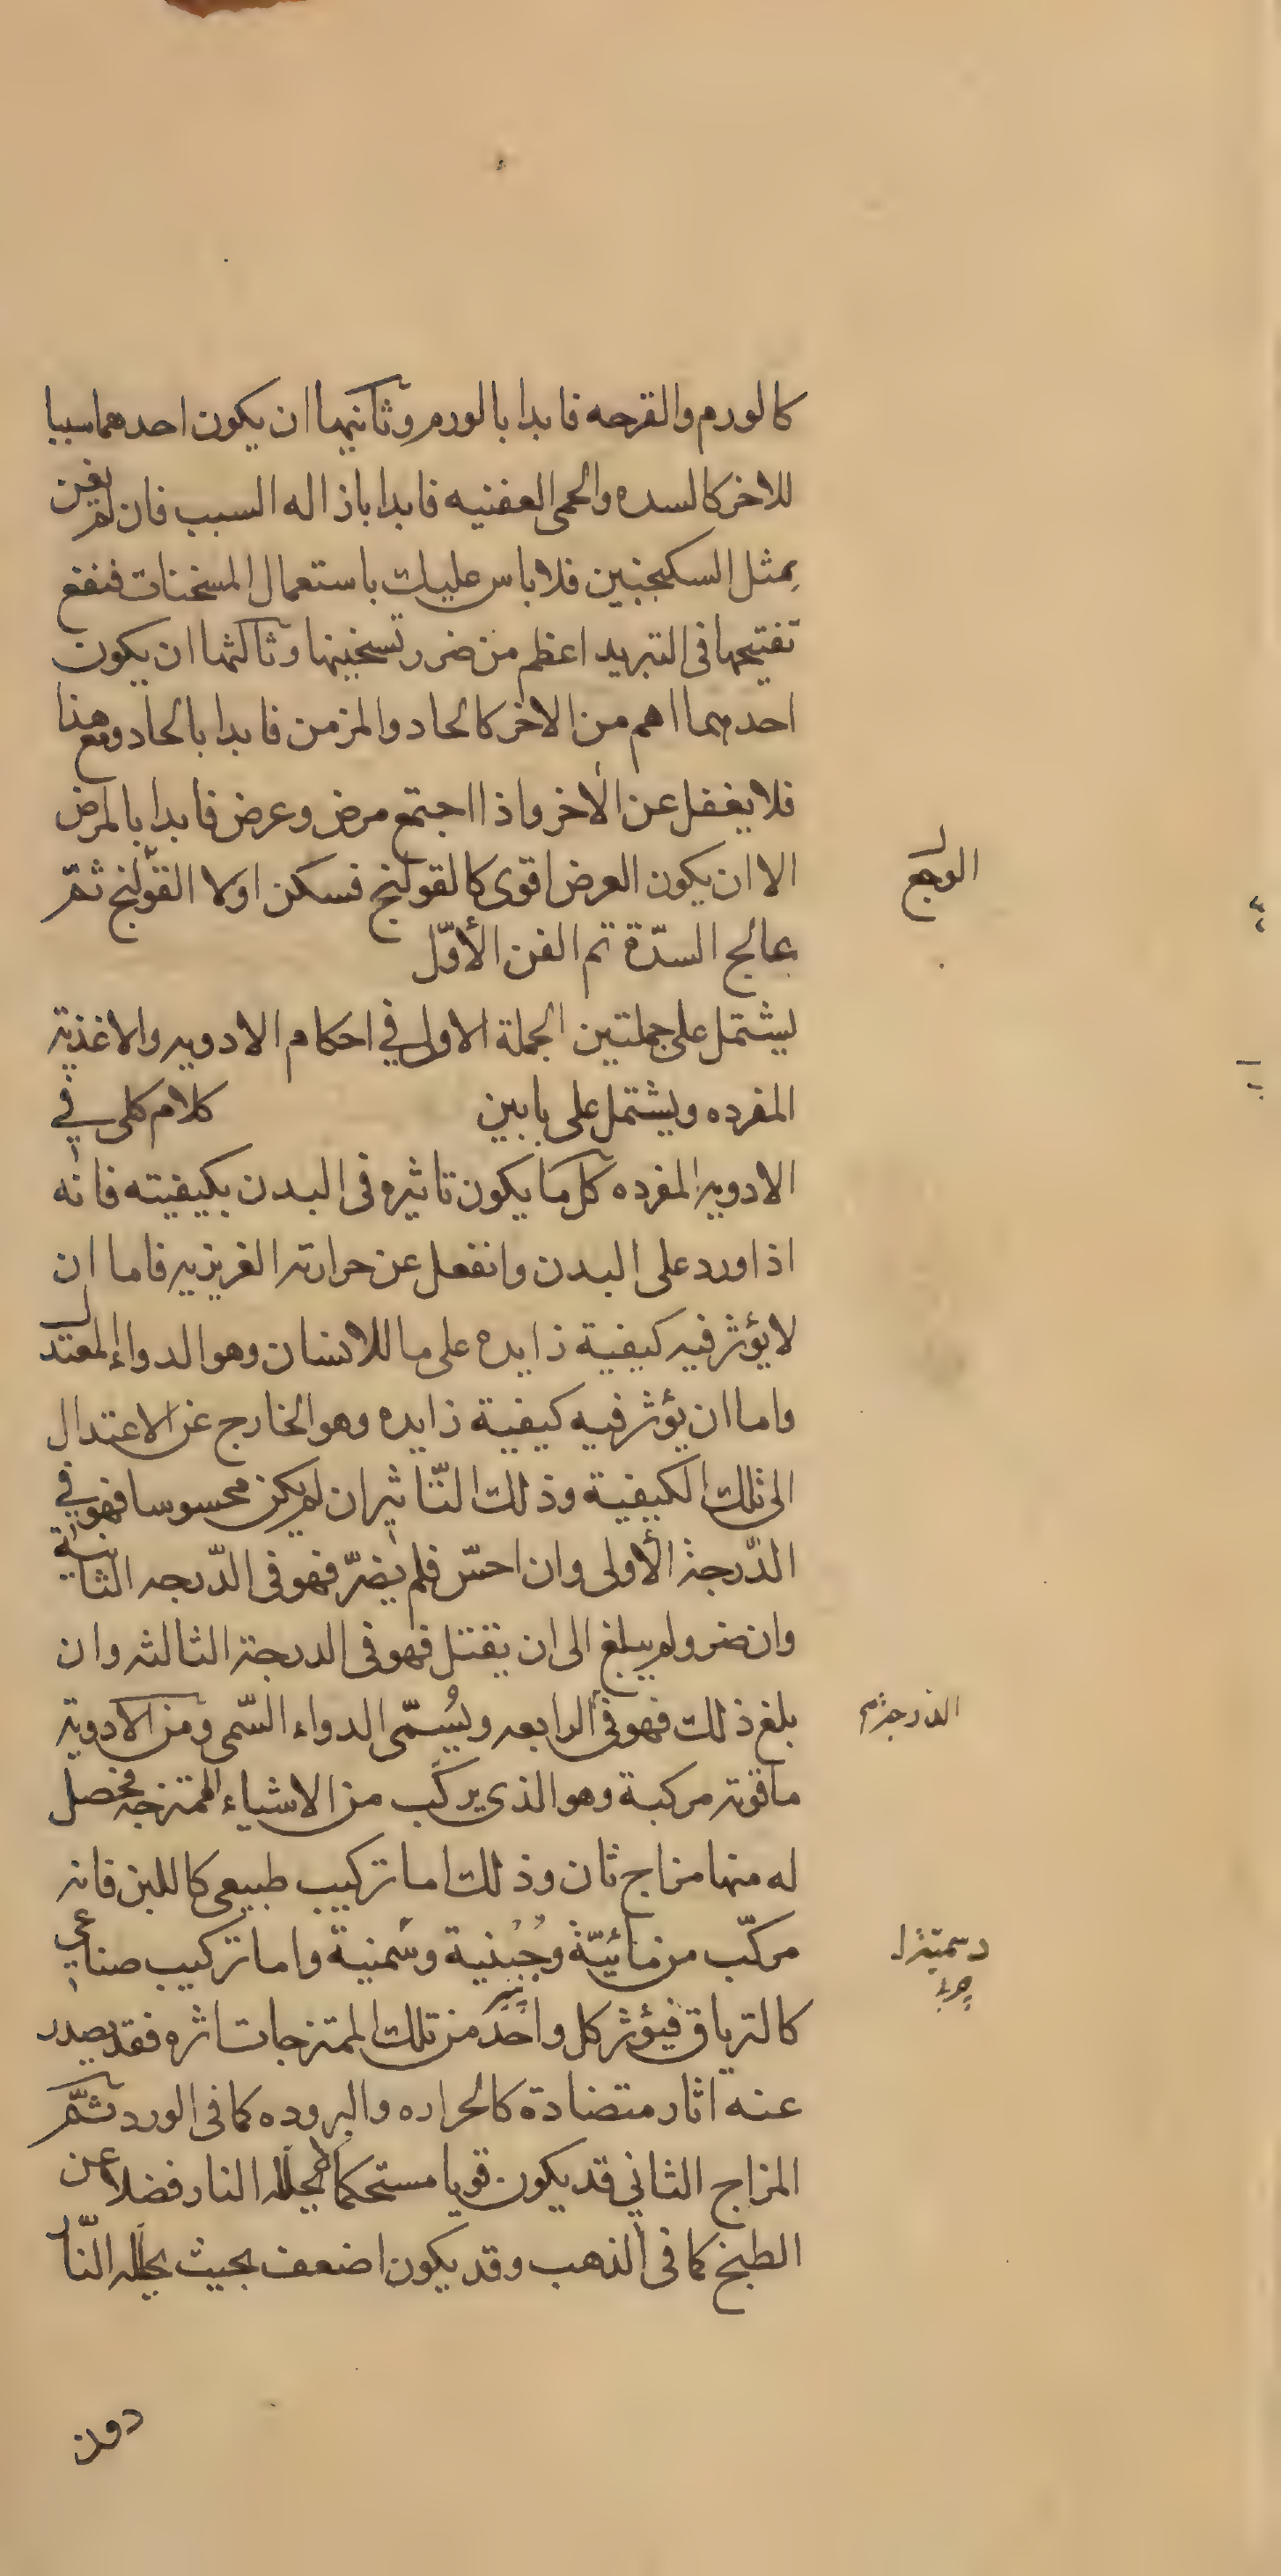 كالورم والقرحه فابدا بالورم وثانيها ان يكون احدهما سببا
للاخر كالسده والحمى العفنيه فابدا باذاله السبب فان لم يغن
بمثل السكنجبين فلا باس عليك باستعمال المسخنات فنفع
تفتيحها فى التبريد اعظم من ضرر تسخينها وثالثها ان يكون
احدهما اهم من الاخر كالحاد والمزمن فابدا بالحاد ومع هذا
فلا يغفل عن الاخر واذا اجتمع مرض وعرض فابدا بالمرض
الا ان يكون العرض اقوى كالقولنج فسكن اولا القولنج ثم
عالج السدّة تم الفن الأوّل
الوجع
ليشتمل على جملتين الجملة الاولى في احكام الادويه والاغذية
المفرده ويشتمل على بابين كلام كلى في
الادويه المفرده كل ما يكون تاثيره فى البدن بكيفيته فانه
اذا ورد على البدن وانفعل عن حرارته الغريزيه فاما ان
لا يؤثر فيه كيفية زايده على ما للانسان وهو الدواء المعتدل
واما ان يؤثر فيه كيفية زايده وهو الخارج عن الاعتدال
الى تلك الكيفية وذلك التّاثير ان لم يكن محسوسا فهو في
الدّرجة الأولى وان احسّ فلم يضرّ فهو فى الدّرجه الثانية
وان ضر ولم يبلغ الى ان يقتل فهو فى الدرجة الثالثه وان
بلغ ذلك فهو فى الرابعه ويُسمّى الدواء السّمى ومن الادوية
ما قوته مركبة وهو الذى يركب من الاشياء الممتزجه فحصل
له منها مزاج ثان وذلك اما تركيب طبيعى كاللبن فانه
مركّب من مائيّة وجُبُنية وسَمنية واما تركيب صناعي
كالترياق فيؤثر كل واحد من تلك الممتزجات اثره فقد يصدر
عنه اثار متضادة كالحراره والبروده كما فى الورد ثمّ
المزاج الثاني قد يكون قويا مستحكما لا يحلله النار فضلا عن
الطبخ كما فى الذهب وقد يكون اضعف بحيث يحلله النّار
دون